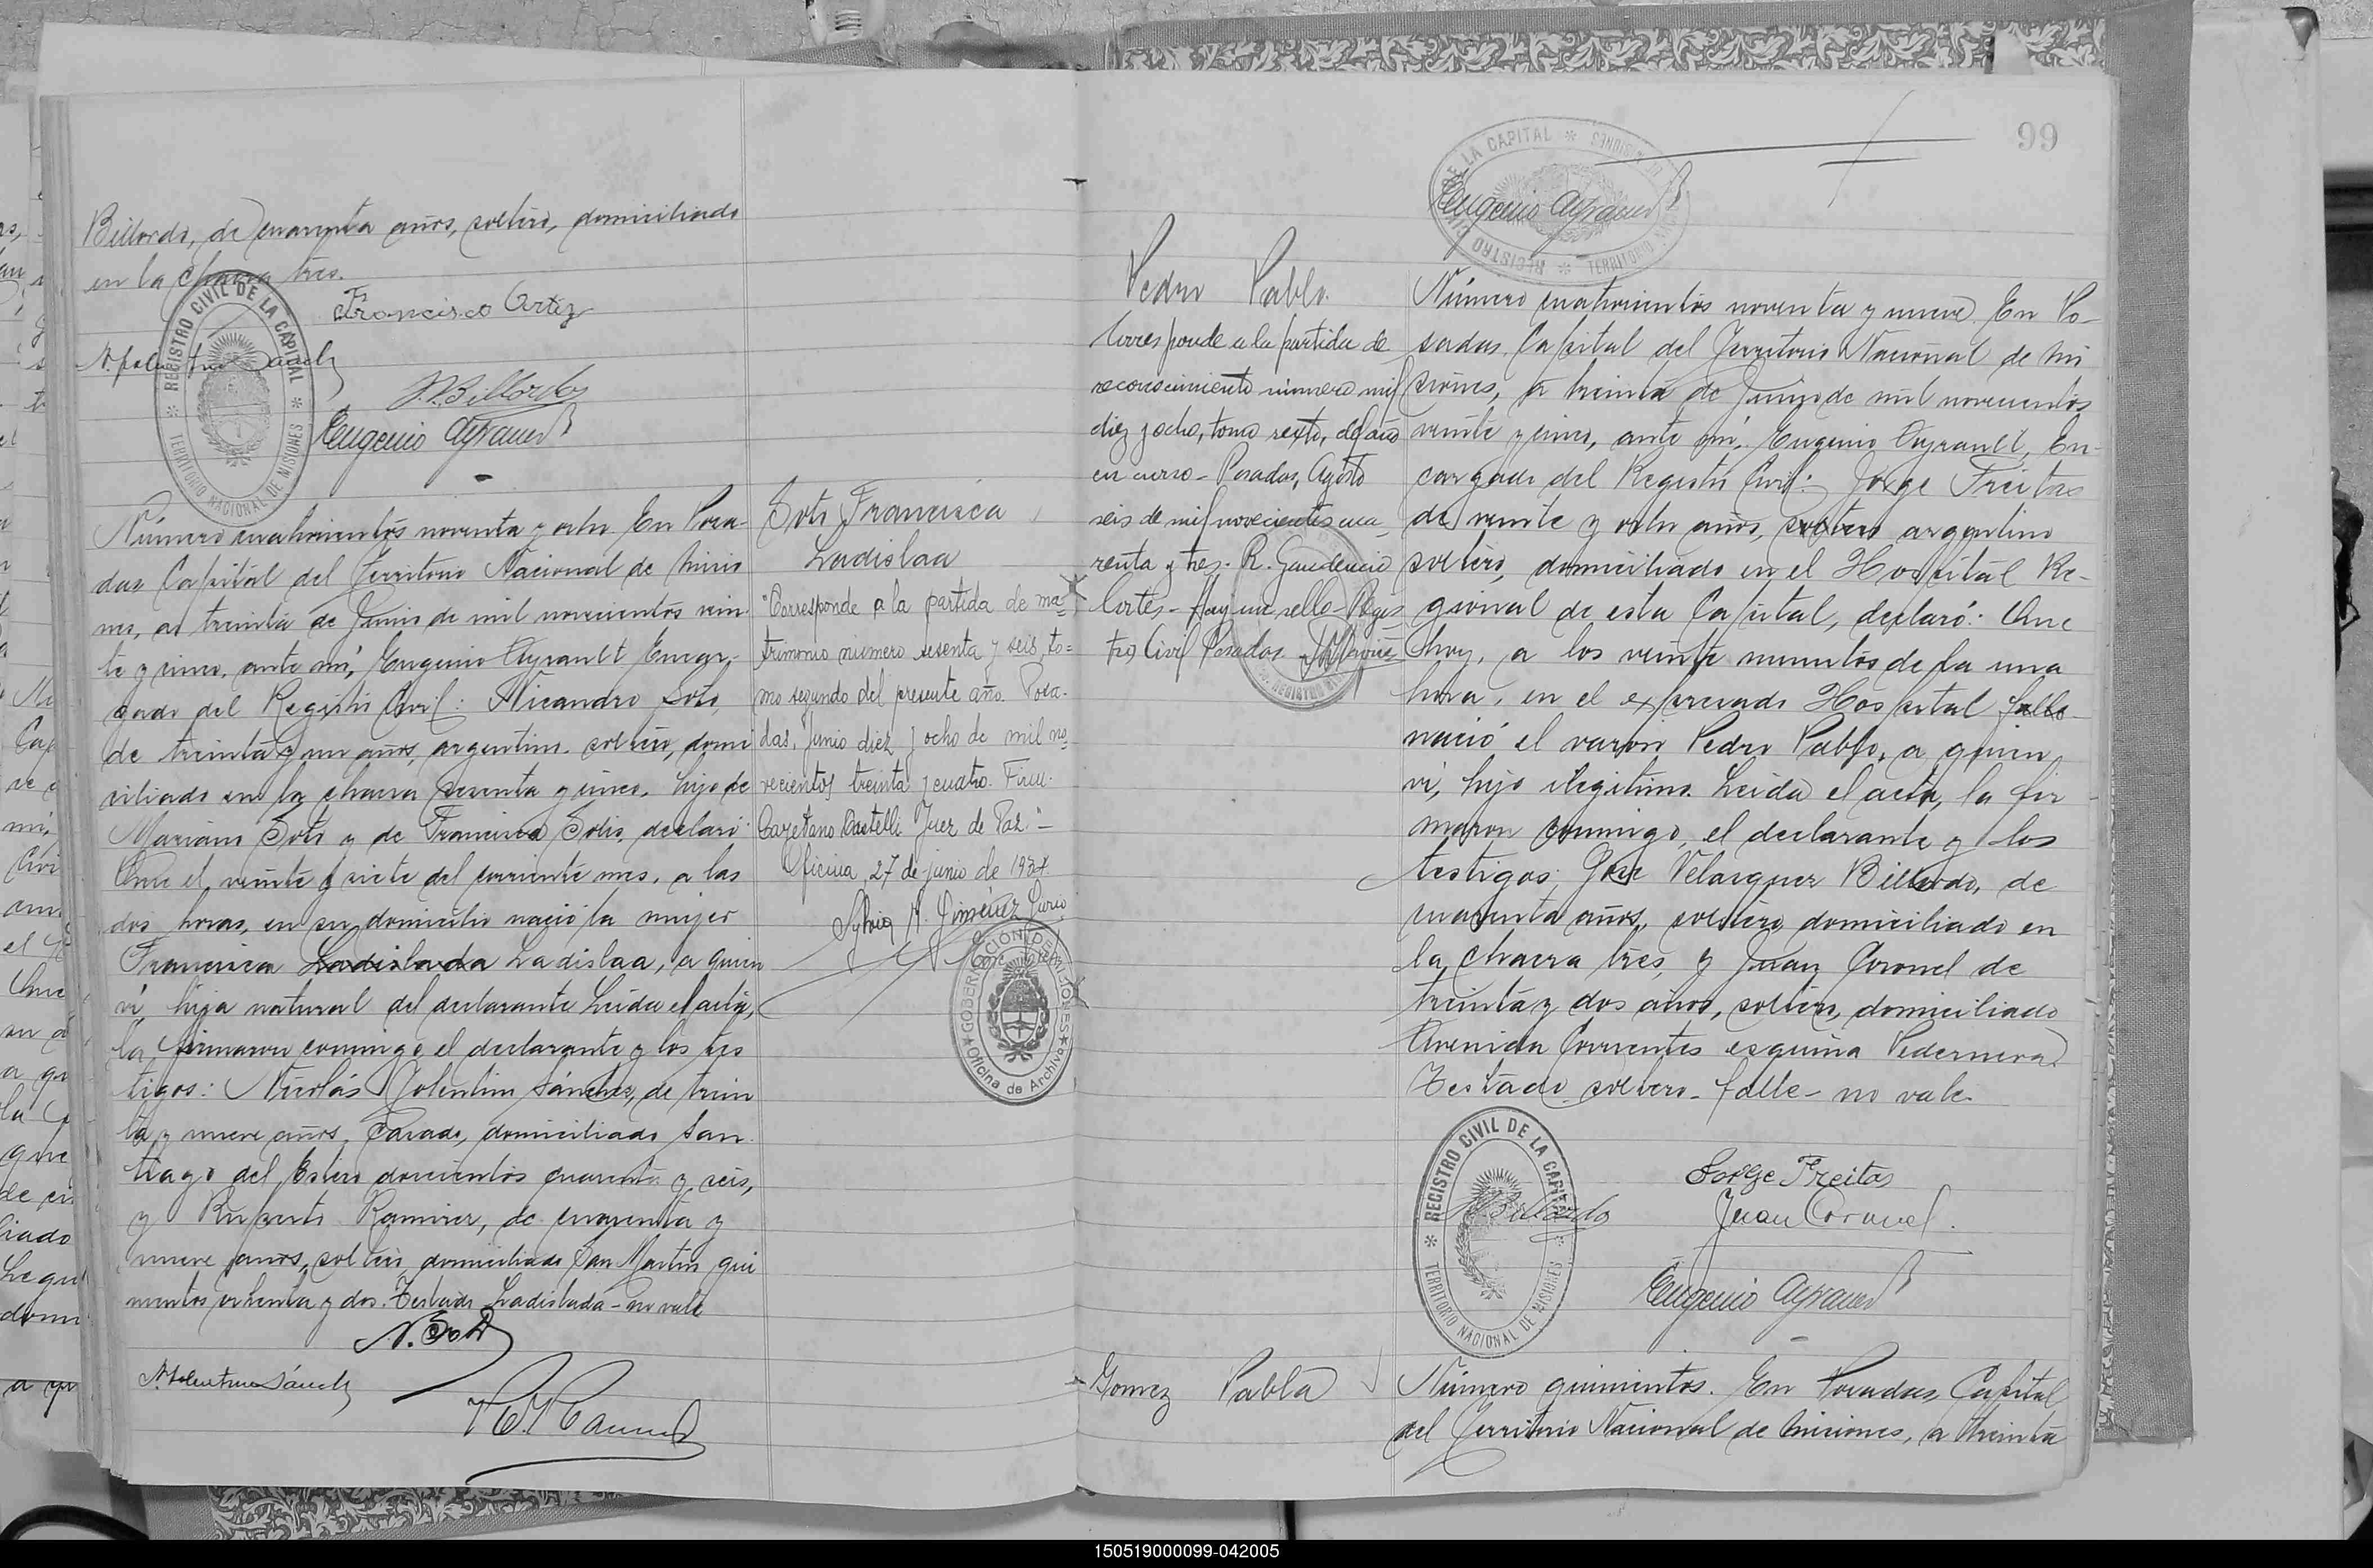 Billordo, de cuarenta años, soltero, domiciliado
en la chacra tres.
Francisco Ortiz
N. Tolentino Sánchez
J. V. Billordo
Eugenio Ayrault
REGISTRO CIVIL DE LA CAPITAL * TERRITORIO NACIONAL DE MISIONES *
Número cuatrocientos noventa y ocho. En Posa-
das, Capital del Territorio Nacional de Misio
nes, a treinta de Junio de mil novecientos vein-
te y cinco, ante mí, Eugenio Ayrault Encar-
gado del Registro Civil: Nicandro Soto,
de treinta y un años, argentino, soltero, domi
ciliado en la chacra sesenta y cinco, hijo de
Mariano Soto y de Francisca Solis, declaró:
Que el veinte y siete del corriente mes, a las
dos horas, en su domicilio nació la mujer
Francisca Ladislada Ladislaa, a quien
ví, hija natural del declarante. Leída el acta,
la firmaron conmigo, el declarante y los tes
tigos: Nicolás Tolentino Sánchez, de trein
ta y nueve años, casado, domiciliado San-
tiago del Estero doscientos cuarenta y seis,
y Ruperto Ramirez, de cuarenta y
nueve años, soltero, domiciliado San Martin qui
nientos ochenta y dos. Testado Ladislada - no vale
N. Soto
N. Tolentino Sánchez
Soto Francisca
Ladislaa
"Corresponde a la partida de ma-
trimonio número sesenta y seis, to=
mo segundo del presente año. Posa-
das, Junio diez y ocho de mil no-
vecientos treinta y cuatro. Firm.
Cayetano Castelli Juez de Paz."-
Oficina, 27 de junio de 1934.
Sylvia A. Jiménez
GOBERNACION DE MISIONES ★ Oficina de Archivo ★
99
REGISTRO CIVIL DE LA CAPITAL * TERRITORIO NACIONAL DE MISIONES *
Eugenio Ayrault
Pedro Pablo.
Corresponde a la partida de
reconocimiento número mil
diez y ocho, tomo sexto, del año
en curso - Posadas, Agosto
seis de mil novecientos cua
renta y tres. R. Gaudencio
Cortés - Hay un sello - Regis
tro Civil Posadas.
Número cuatrocientos noventa y nueve. En Po-
sadas, Capital del Territorio Nacional de Mi
siones, a treinta de Junio de mil novecientos
veinte y cinco, ante mí, Eugenio Ayrault, En-
cargado del Registro Civil: Jorge Freitas
de veinte y ocho años, soltero argentino
soltero, domiciliado en el Hospital Re-
gional de esta Capital, declaró: Que
hoy, a los veinte minutos de la una
hora, en el expresado Hospital falle
nació el varón Pedro Pablo, a quien
ví, hijo ilegítimo. Leída el acta, la fir
maron conmigo, el declarante y los
testigos, José Velazquez Billordo, de
cuarenta años, soltero, domiciliado en
la chacra tres, y Juan Coronel de
treinta y dos años, soltero, domiciliado
Avenida Corrientes esquina Pedernera.
Testado soltero - falle - no vale.
REGISTRO CIVIL DE LA CAPITAL * TERRITORIO NACIONAL DE MISIONES *
Jorge Freitas
Billordo
Juan Coronel.
Eugenio Ayrault
Gomez Pabla
Número quinientos. En Posadas, Capital
del Territorio Nacional de Misiones, a treinta
150519000099-042005